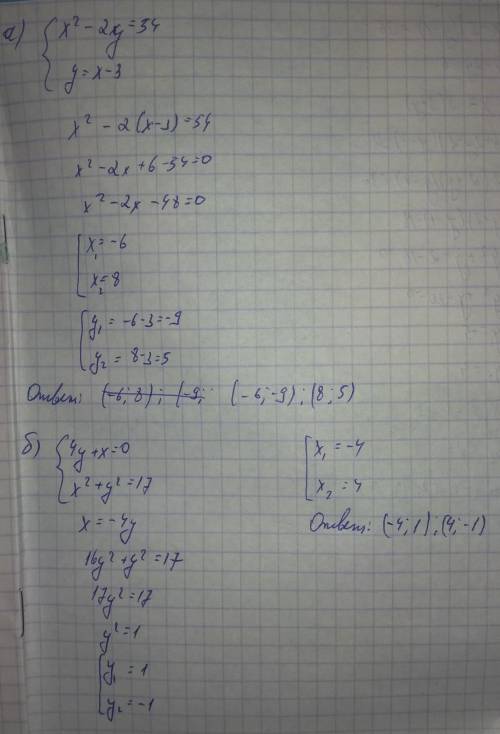 а) { x² - 2xy = 54
y = x - 3
x² - 2(x-3) = 54
x² - 2x + 6 - 54 = 0
x² - 2x - 48 = 0
[ x₁ = -6
x₂ = 8
[ y₁ = -6-3 = -9
y₂ = 8-3 = 5
Ответ: (-6; 8); (-9; (-6; -9); (8; 5)
б) { 4y + x = 0
x² + y² = 17
x = -4y
16y² + y² = 17
17y² = 17
y² = 1
[ y₁ = 1
y₂ = -1
[ x₁ = -4
x₂ = 4
Ответ: (-4; 1); (4; -1)